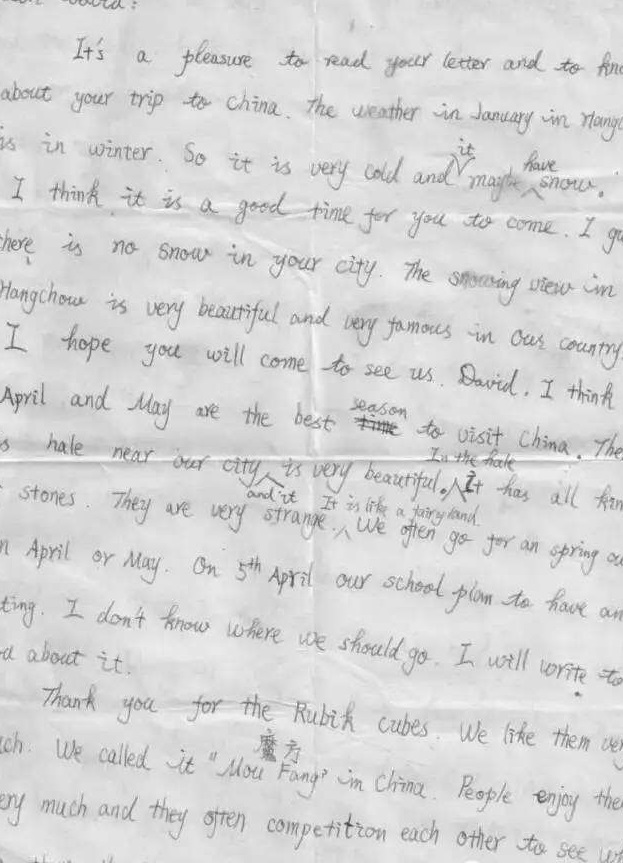 It's a pleasure to read your letter and to kno
about your trip to China. The weather in January in Hangc
is in winter. So it is very cold and it maybe have snow.
I think it is a good time for you to come. I gu
there is no snow in your city. The snowing view in
Hangchow is very beautiful and very famous in our country.
I hope you will come to see us. David. I think
April and May are the best season to visit China. The
s hale near our city and it is very beautiful. In the hale It has all kin
stones. They are very strange. It is like a fairy land. We often go for an spring ou
n April or May. On 5th April our school plan to have an
ting. I don't know where we should go. I will write to
u about it.
Thank you for the Rubik cubes. We like them ver
uch. We called it "Mou Fang" 魔方 in China. People enjoy the
ery much and they often competition each other to see w